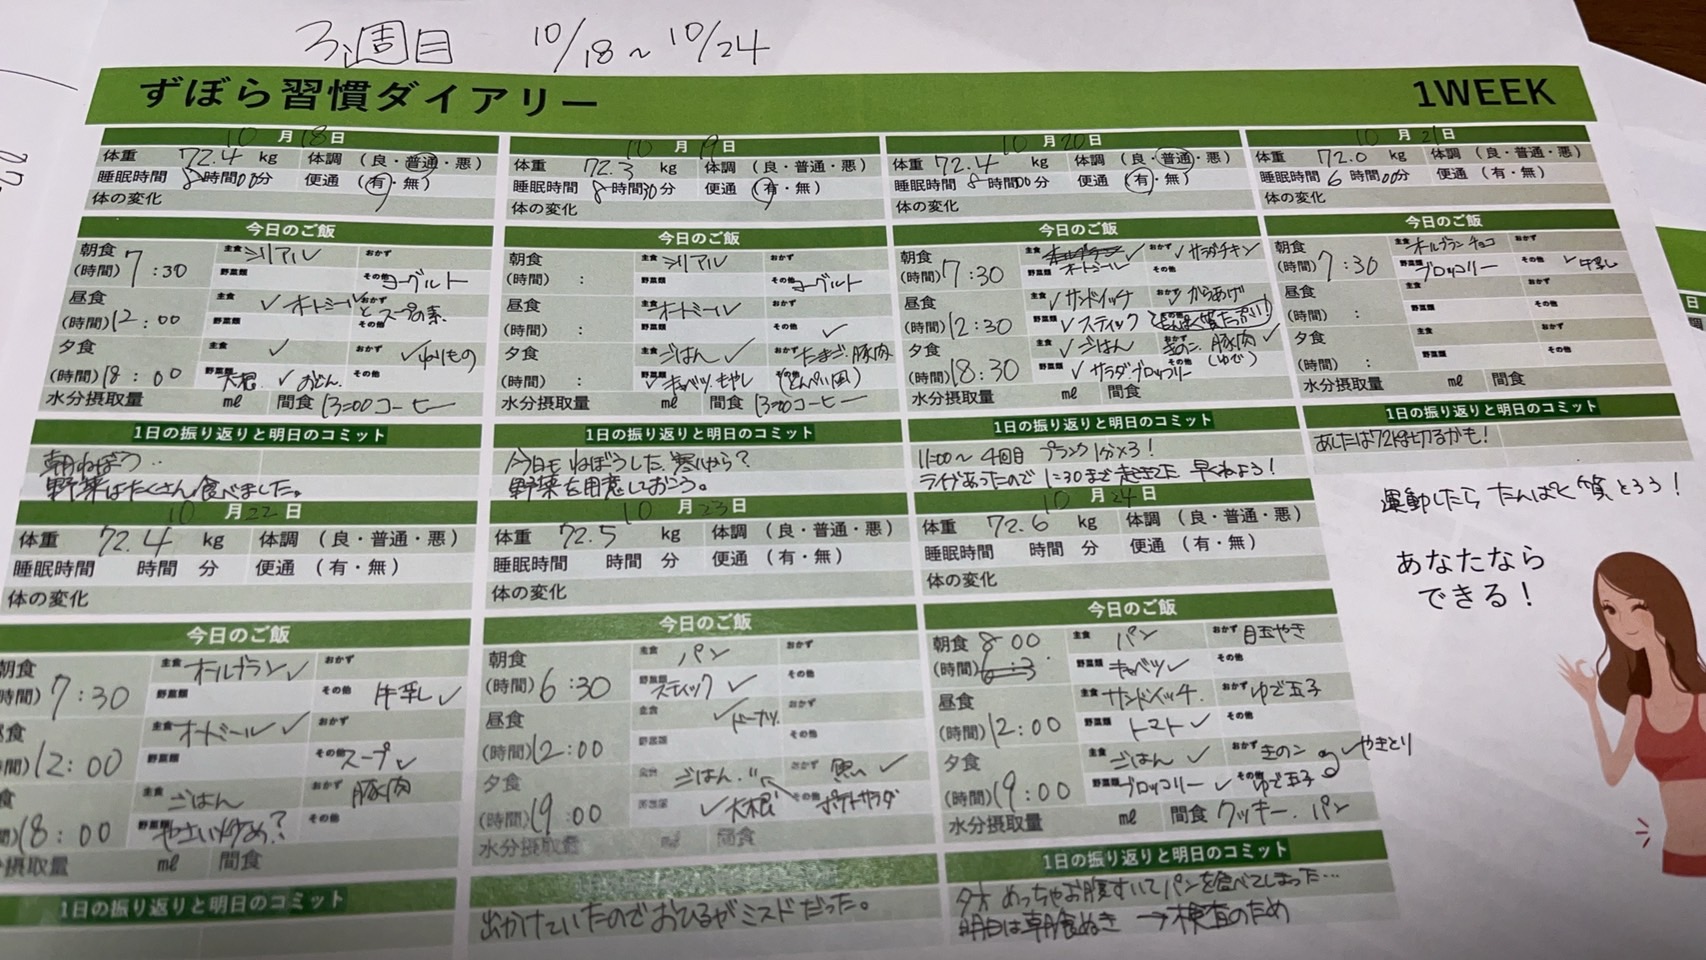 3週目 10/18~10/24
ずぼら習慣ダイアリー 1WEEK
10月18日
体重 72.4 kg 体調 (良・普通・悪)
睡眠時間 8時間00分 便通 (有・無)
体の変化
今日のご飯
朝食 主食 シリアル おかず
(時間) 7:30 野菜類 その他 ヨーグルト
昼食 主食 ✓オートミール おかず とスープの素
(時間) 12:00 野菜類 その他
夕食 主食 ✓ おかず ✓ねりもの
(時間) 18:00 野菜類 大根 ✓おでん その他
水分摂取量 ml 間食 13:00コーヒー
1日の振り返りと明日のコミット
朝ねぼう..
野菜はたくさん食べました。
10月19日
体重 72.3 kg 体調 (良・普通・悪)
睡眠時間 8時間30分 便通 (有・無)
体の変化
今日のご飯
朝食 主食 シリアル おかず
(時間) : 野菜類 その他 ヨーグルト
昼食 主食 オートミール✓ おかず
(時間) : 野菜類 その他 ✓
夕食 主食 ごはん ✓ おかず たまご. 豚肉
(時間) : 野菜類 ✓キャベツ.もやし その他 (とんぺい風)
水分摂取量 ml 間食 13:00コーヒー
1日の振り返りと明日のコミット
今日もねぼうした.寒いから?
野菜を用意しておこう。
10月20日
体重 72.4 kg 体調 (良・普通・悪)
睡眠時間 8時間00分 便通 (有・無)
体の変化
今日のご飯
朝食 主食 オートミール ✓ おかず ✓サラダチキン
(時間) 7:30 野菜類 その他
昼食 主食 ✓サンドイッチ おかず ✓からあげ
(時間) 12:30 野菜類 ✓スティック その他 たんぱく質たっぷり!
夕食 主食 ✓ごはん おかず きのこ. 豚肉✓
(時間) 18:30 野菜類 ✓サラダ.ブロッコリー その他 (ゆで)
水分摂取量 ml 間食
1日の振り返りと明日のコミット
11:00~ 4回目 プランク1分×3!
ライブあったので1:30まで起きてた 早くねよう!
10月21日
体重 72.0 kg 体調 (良・普通・悪)
睡眠時間 6時間00分 便通 (有・無)
体の変化
今日のご飯
朝食 主食 オールブランチョコ おかず
(時間) 7:30 野菜類 ブロッコリー その他 ✓牛乳
昼食 主食 おかず
(時間) : 野菜類 その他
夕食 主食 おかず
(時間) : 野菜類 その他
水分摂取量 ml 間食
1日の振り返りと明日のコミット
あしたは72kg切るかも!
運動したら たんぱく質とろう!
あなたなら
できる!
10月22日
体重 72.4 kg 体調 (良・普通・悪)
睡眠時間 時間 分 便通 (有・無)
体の変化
今日のご飯
朝食 主食 オールブラン✓ おかず
(時間) 7:30 野菜類 その他 牛乳✓
昼食 主食 オートミール✓ おかず
(時間) 12:00 野菜類 その他 スープ✓
食 主食 ごはん おかず 豚肉
(時間) 18:00 野菜類 やさい炒め? その他
摂取量 ml 間食
1日の振り返りと明日のコミット
10月23日
体重 72.5 kg 体調 (良・普通・悪)
睡眠時間 時間 分 便通 (有・無)
体の変化
今日のご飯
朝食 主食 パン おかず
(時間) 6:30 野菜類 スティック ✓ その他
昼食 主食 ✓ドーナツ. おかず
(時間) 12:00 野菜類 その他
夕食 主食 ごはん おかず 魚 ✓
(時間) 19:00 野菜類 ✓大根 その他 ポテトサラダ
水分摂取量 ml 間食
1日の振り返りと明日のコミット
出かけていたのでおひるがミスドだった。
10月24日
体重 72.6 kg 体調 (良・普通・悪)
睡眠時間 時間 分 便通 (有・無)
体の変化
今日のご飯
朝食 8:00 主食 パン おかず 目玉やき
(時間) 野菜類 キャベツ✓ その他
昼食 主食 サンドイッチ. おかず ゆで玉子
(時間) 12:00 野菜類 トマト✓ その他
夕食 主食 ごはん ✓ おかず きのこ ✓やきとり
(時間) 19:00 野菜類 ブロッコリー ✓ その他 ゆで玉子
水分摂取量 ml 間食 クッキー. パン
1日の振り返りと明日のコミット
夕方 めっちゃお腹すいてパンを食べてしまった…
明日は朝食ぬき →検査のため